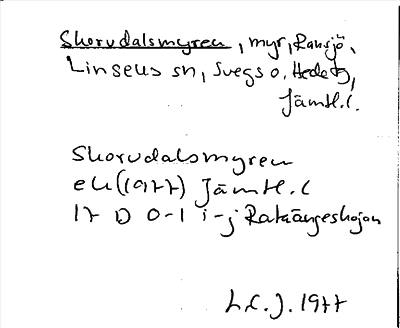 Skorvdalsmyren, myr, Ransjö,
Linsells sn, Svegs o. Hede tg,
Jämtl. l.
Skorvdalsmyren
ek (1977) Jämtl. l
17 D 0-1 i-j
L.C.J. 1977